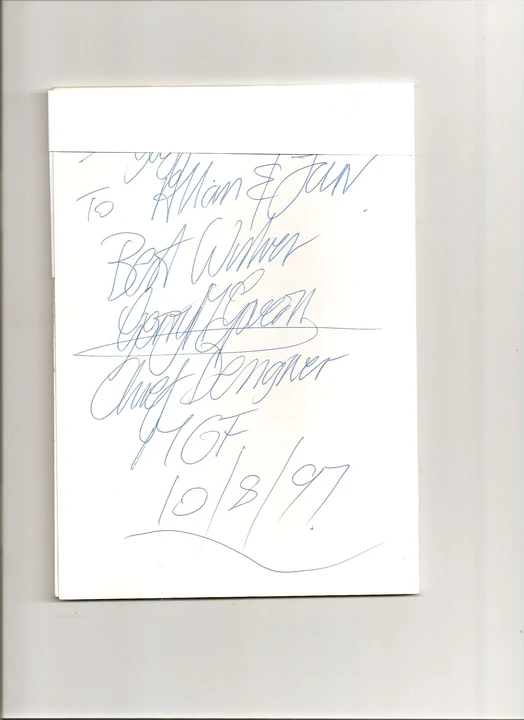 To Allan & Jan
Best Wishes
Gerry McGovern
Chief Designer
MGF
10/8/97